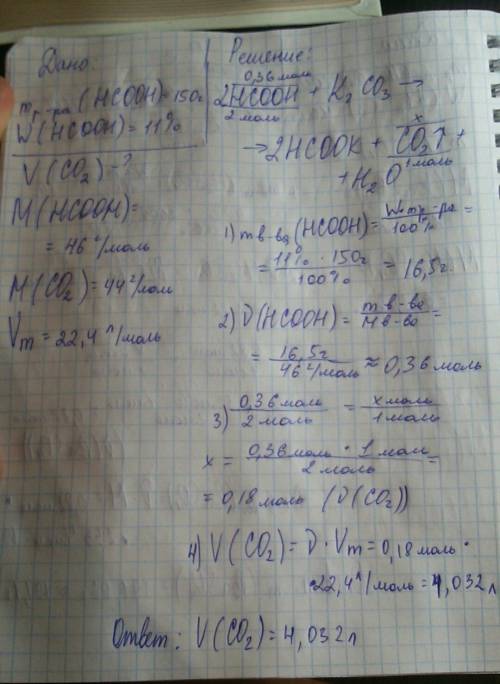 Дано:
m р-ра (HCOOH) = 150г
W(HCOOH) = 11%
V(CO₂) - ?
M(HCOOH) =
= 46 г/моль
M(CO₂) = 44 г/моль
Vm = 22,4 л/моль
Решение:
0,36 моль x
2HCOOH + K₂CO₃ →
2 моль
→ 2HCOOK + CO₂↑ +
1 моль
+ H₂O
1) m в-ва (HCOOH) = W·m р-ра / 100% =
= 11% · 150г / 100% = 16,5г
2) ν(HCOOH) = m в-ва / M в-ва =
= 16,5г / 46 г/моль ≈ 0,36 моль
3) 0,36 моль / 2 моль = x моль / 1 моль
x = 0,36 моль · 1 моль / 2 моль =
= 0,18 моль (ν(CO₂))
4) V(CO₂) = ν · Vm = 0,18 моль ·
· 22,4 л/моль = 4,032 л
Ответ: V(CO₂) = 4,032 л